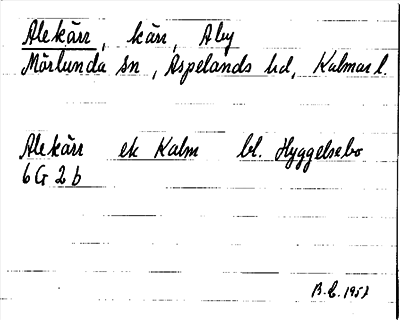 Alekärr, kärr, Aby
Mörlunda sn, Aspelands hd, Kalmar l.
Alekärr ek Kalm bl. Hyggelsebo
6 G 2 b
B.E. 1957